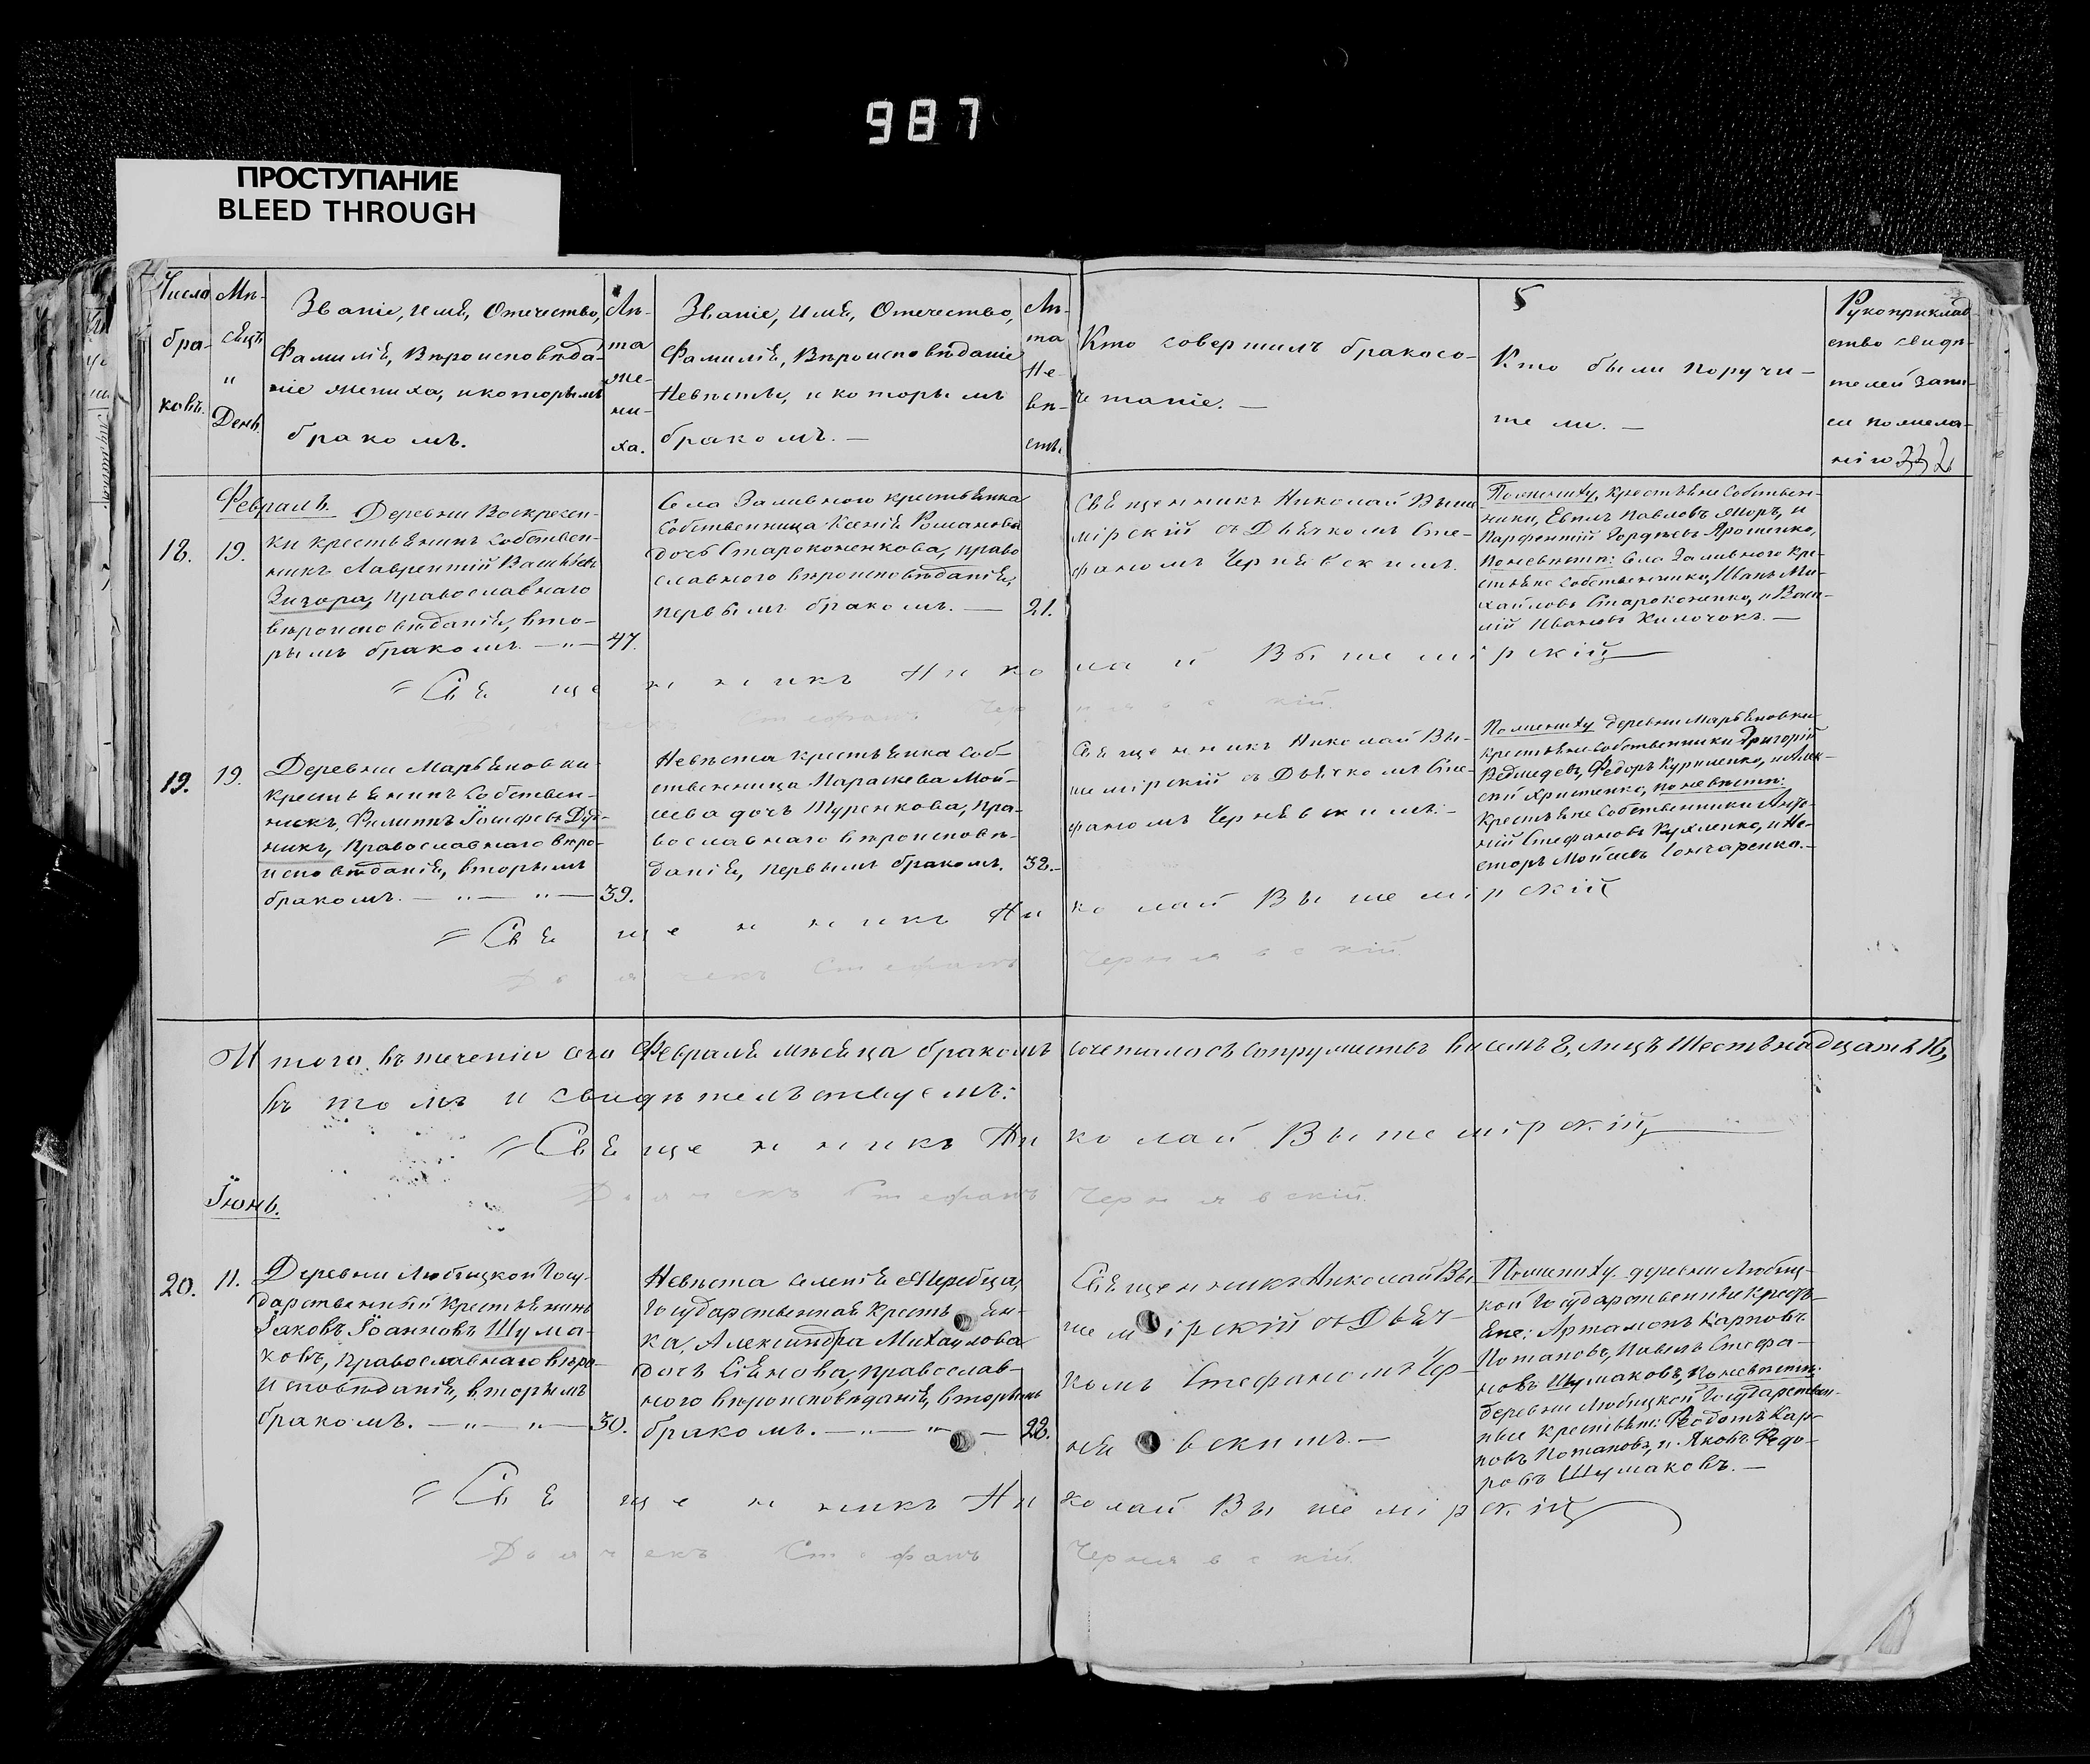 987
ПРОСТУПАНИЕ
BLEED THROUGH
Число бра-ковъ.
Мѣ-сяцъ и День.
Званіе, имя, Отечество,
Фамилія, Вѣроисповѣда-
ніе жениха, и которымъ
бракомъ.
Лѣ-та же-ни-ха.
Званіе, имя, Отечество,
Фамилія, Вѣроисповѣданіе
Невѣсты, и которымъ
бракомъ. —
Лѣ-та Не-вѣ-сты.
Кто совершилъ бракосо-
четаніе. —
5
Кто были поручи-
тели. —
Рукоприклад-
ство свидѣ-
телей запи-
си по жела-
нію 332
Февраль.
18.
19.
Деревни Воскресен-
ки крестьянинъ собствен-
никъ Лаврентій Васильевъ
Зигора, православнаго
вѣроисповѣданія, вто-
рымъ бракомъ. — " —
47.
Села Заливного крестьянка
Собственница Ксенія Романова
дочь Старокоженкова, право
славного вѣроисповѣданія,
первымъ бракомъ. —
21.
Священникъ Николай Выше
мірскій съ Дьячкомъ Сте-
фаномъ Чернявскимъ.
По жениху, крестьяне Собствен-
ники, Павловъ и
Парфентій Гордѣевъ Ярошенко,
по невѣстѣ: Села Заливного кре-
стьяне собственники, Иванъ Ми-
хайловъ Старокоженко, и Васи-
лій Ивановъ Килочокъ. —
Священникъ Николай Вышемірскій
Дьячекъ Стефанъ Чернявскій.
19.
19.
Деревни Марьяновки
крестьянинъ Собствен-
никъ, Филиппъ Іосифовъ Дуд-
никъ, Православнаго вѣро-
исповѣданія, вторымъ
бракомъ. — " — " —
39.
Невѣста крестьянка соб-
ственница Параскева Мой-
сева дочь Туренкова, пра-
вославнаго вѣроисповѣ-
данія, первымъ бракомъ.
32.
Священникъ Николай Вы-
шемірскій съ Дьячкомъ Сте-
фаномъ Чернявскимъ. —
По жениху деревни Марьяновки
крестьяне собственники Григорій
Ведмедевъ, Федоръ Куриленко, и Алек-
сѣй Христенко, по невѣстѣ:
Крестьяне Собственники Анто-
ній Стефановъ и Не-
сторъ Мойсеевъ Гончаренко. —
Священникъ Николай Вышемірскій
Дьячекъ Стефанъ Чернявскій.
Итого въ теченіи сего Февраля мѣсяца бракомъ сочеталось супружествъ восемь 8, лицъ Шестьнадцать 16,
въ томъ и свидѣтельствуемъ:
Священникъ Николай Вышемірскій
Дьячекъ Стефанъ Чернявскій.
Іюнь.
20.
11.
Деревни Любицкой Госу-
дарственный крестьянинъ
Іаковъ Іоанновъ Шума-
ковъ, православнаго вѣро-
исповѣданія, вторымъ
бракомъ. — " — " —
30.
Невѣста селенія
Государственная крестьян-
ка, Александра Михайлова
дочь православ-
ного вѣроисповѣданія, вторымъ
бракомъ. — " — " —
22.
Священникъ Николай Вы-
шемірскій съ Дьяч-
комъ Стефаномъ Чер-
нявскимъ. —
По жениху деревни Любиц-
кой Государственные кресть-
яне: Артамонъ Карповъ
Потаповъ, Павелъ Стефа-
новъ Шумаковъ, по невѣстѣ:
деревни Любицкой Государствен-
ные крестьяне: Феодотъ Кар-
повъ Потаповъ, и Яковъ Федо-
ровъ Шумаковъ. —
Священникъ Николай Вышемірскій
Дьячекъ Стефанъ Чернявскій.